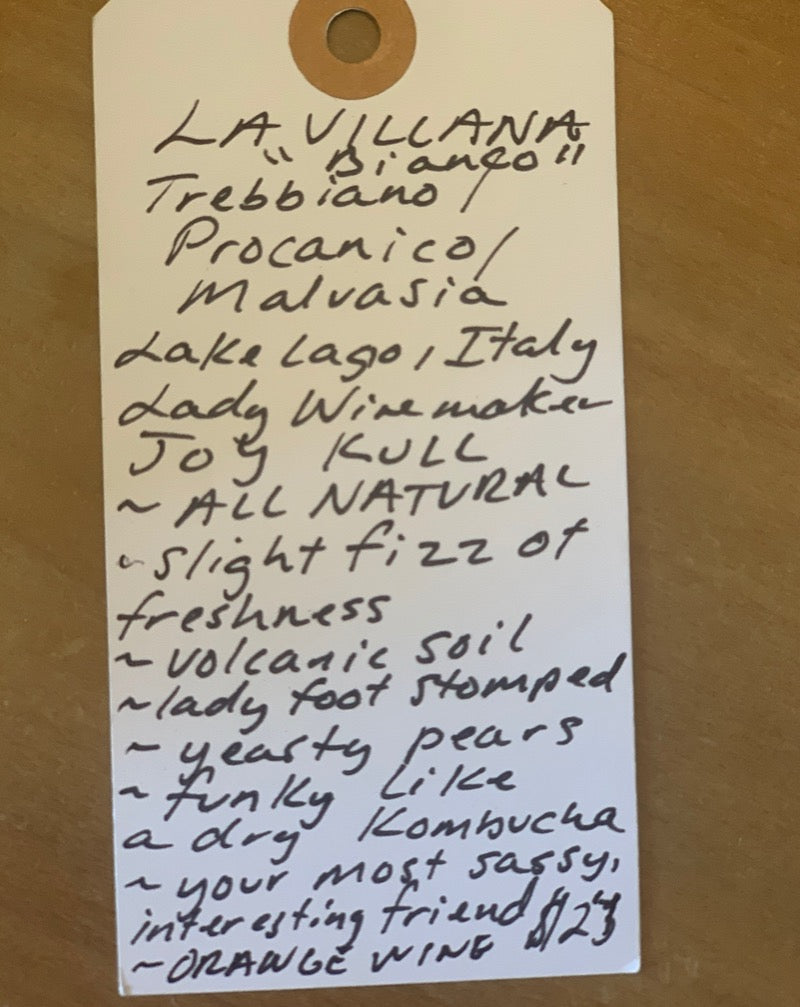 LA VILLANA
"Bianco"
Trebbiano /
Procanico/
Malvasia
Lake Lago, Italy
Lady Winemaker
JOY KULL
~ ALL NATURAL
~ slight fizz of
freshness
~ volcanic soil
~ lady foot stomped
~ yeasty pears
~ funky like
a dry Kombucha
~ your most sassy,
interesting friend
~ ORANGE WINE